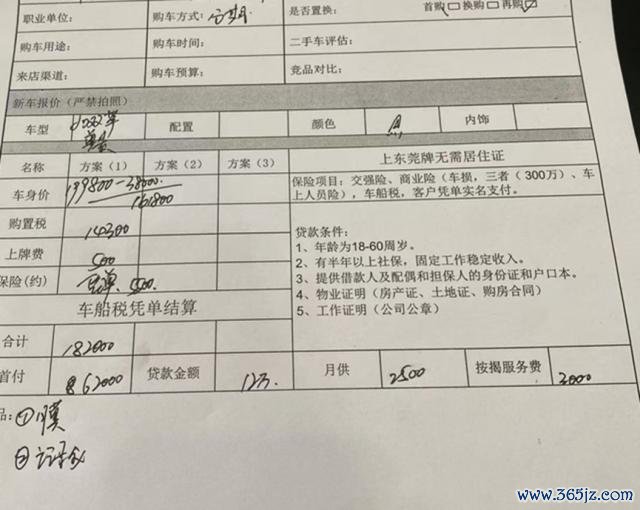 职业单位： 购车方式：分期 是否置换： 首购□ 换购□ 再购☑
购车用途： 购车时间： 二手车评估：
来店渠道： 购车预算： 竞品对比：
新车报价（严禁拍照）
车型 配置 颜色 内饰
名称 方案（1） 方案（2） 方案（3） 上东莞牌无需居住证
车身价 199800-38000 161800
保险项目：交强险、商业险（车损，三者（300万）、车
上人员险），车船税，客户凭单实名支付。
购置税 14300
上牌费 500
保险(约) 5500.
贷款条件：
1、年龄为18-60周岁。
2、有半年以上社保，固定工作稳定收入。
3、提供借款人及配偶和担保人的身份证和户口本。
4、物业证明（房产证、土地证、购房合同）
5、工作证明（公司公章）
车船税凭单结算
合计 182000
首付 62000 贷款金额 12万. 月供 2500 按揭服务费 3000
品：①膜
②记录仪
www.365jz.com